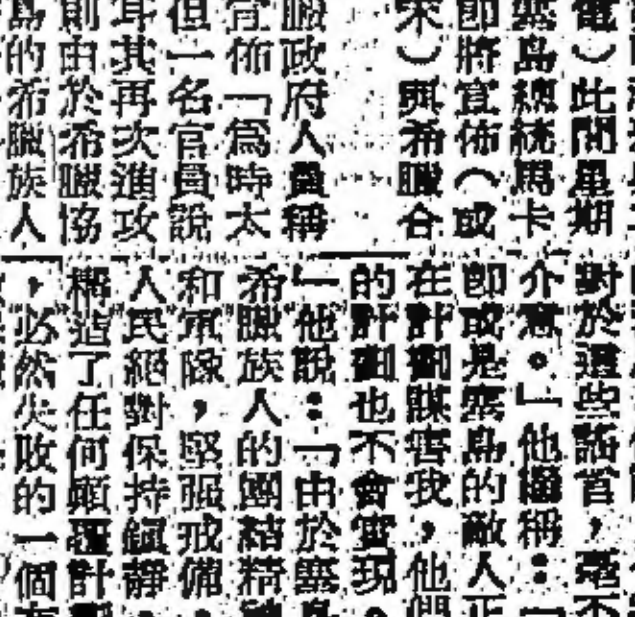 電）此間星期
塞島總統馬卡
即將宣佈（或
宋）與希臘合
臘政府人員稱
宣佈「為時太
但一名官員說
耳其再次進攻
則由於希臘協
島的希臘族人
對於這些謠言，毫不
介意。』他繼稱：「
即或是塞島的敵人正
在計劃謀害我，他們
的計劃也不會實現。
』他說：「由於塞島
希臘族人的團結精
和軍隊，堅強戒備，
人民絕對保持鎮靜，
構造了任何顛覆計劃
，必然失敗的一個